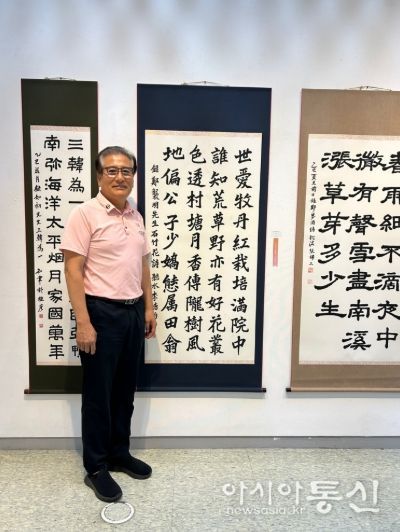 春雨細不滴夜中
微有聲雪盡南溪
漲草芽多少生
世愛牡丹紅栽培滿院中
誰知荒草野亦有好花叢
色透村塘月香傳隴樹風
地偏公子少嬌態属田翁
錄鄭襲明先生石竹花詩 聽水李
三韓為一
南弥海洋太平烟月家國萬年
아시아통신
newsasia.kr